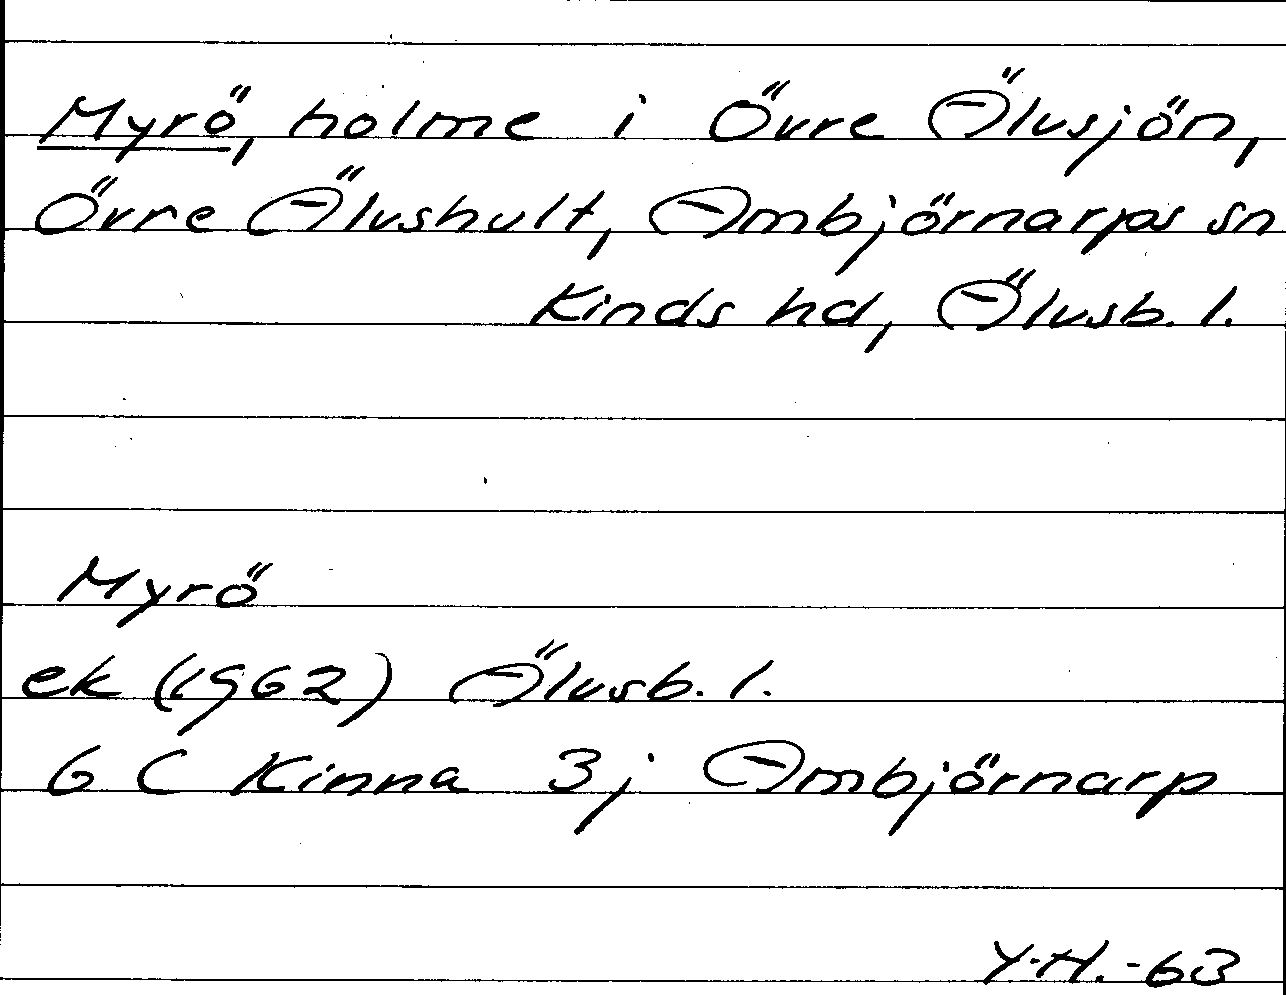 Myrö, holme i Övre Älvsjön,
Övre Älvshult, Ambjörnarps sn
Kinds hd, Älvsb. l.
Myrö
ek (1962) Älvsb. l.
6 C Kinna 3 j Ambjörnarp
Y.H.-63